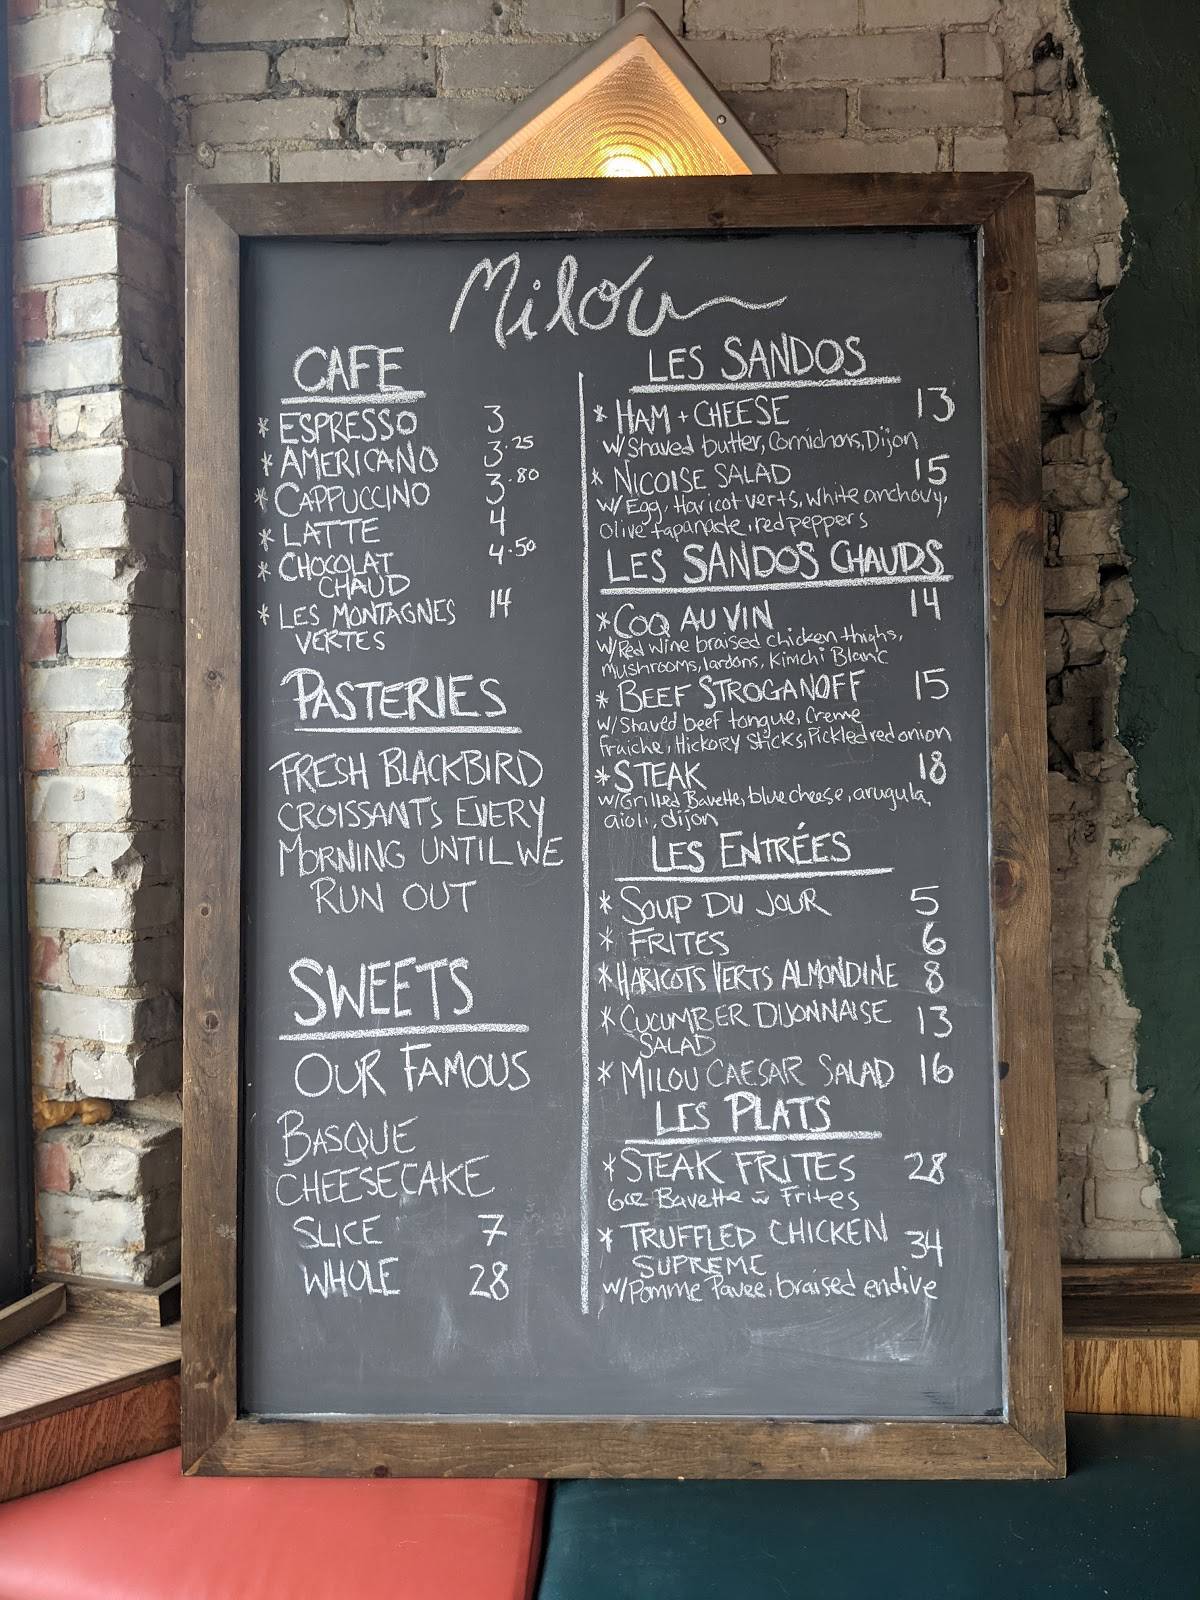 Milou
CAFE
* ESPRESSO 3
* AMERICANO 3.25
* CAPPUCCINO 3.80
* LATTE 4
* CHOCOLAT 4.50
CHAUD
* LES MONTAGNES 14
VERTES
PASTERIES
FRESH BLACKBIRD
CROISSANTS EVERY
MORNING UNTIL WE
RUN OUT
SWEETS
OUR FAMOUS
BASQUE
CHEESECAKE
SLICE 7
WHOLE 28
LES SANDOS
* HAM + CHEESE 13
w/ Shaved butter, Cornichons, Dijon
* NICOISE SALAD 15
w/ Egg, Haricot verts, white anchovy,
Olive tapanade, red peppers
LES SANDOS CHAUDS
* COQ AU VIN 14
w/ Red wine braised chicken thighs,
mushrooms, lardons, Kimchi Blanc
* BEEF STROGANOFF 15
w/ Shaved beef tongue, Creme
Fraiche, Hickory Sticks, Pickled red onion
* STEAK 18
w/ Grilled Bavette, blue cheese, arugula,
aioli, dijon
LES ENTRÉES
* SOUP DU JOUR 5
* FRITES 6
* HARICOTS VERTS ALMONDINE 8
* CUCUMBER DIJONNAISE 13
SALAD
* MILOU CAESAR SALAD 16
LES PLATS
* STEAK FRITES 28
6oz Bavette w Frites
* TRUFFLED CHICKEN 34
SUPREME
w/ Pomme Pavee, braised endive